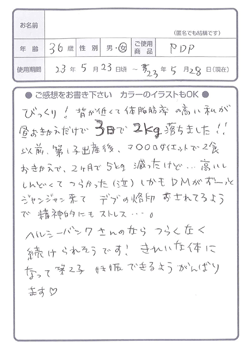 お名前
(匿名でも結構です)
年齢 36歳 性別 男・女 ご使用商品 PDP
使用期間 23年5月23日頃～23年5月28日(現在)
●ご感想をお書き下さい カラーのイラストもOK●
びっくり！背が低くて体脂肪率の高い私が
食おきかえだけで3日で2kg落ちました!!
以前、第1子出産後、マクロダイエットで2食
おきかえで、2ヶ月で5kg減ったけど…高いし
しんどくてつらかった(泣)しかもDMがずーっと
ジャンジャン来て デブの烙印 おされてるようで
で精神的にもストレス…。
ヘルシーバンクさんのなら つらくなく
続けられそうです！きれいな体に
なって第2子 妊娠できるようがんばり
ます♡